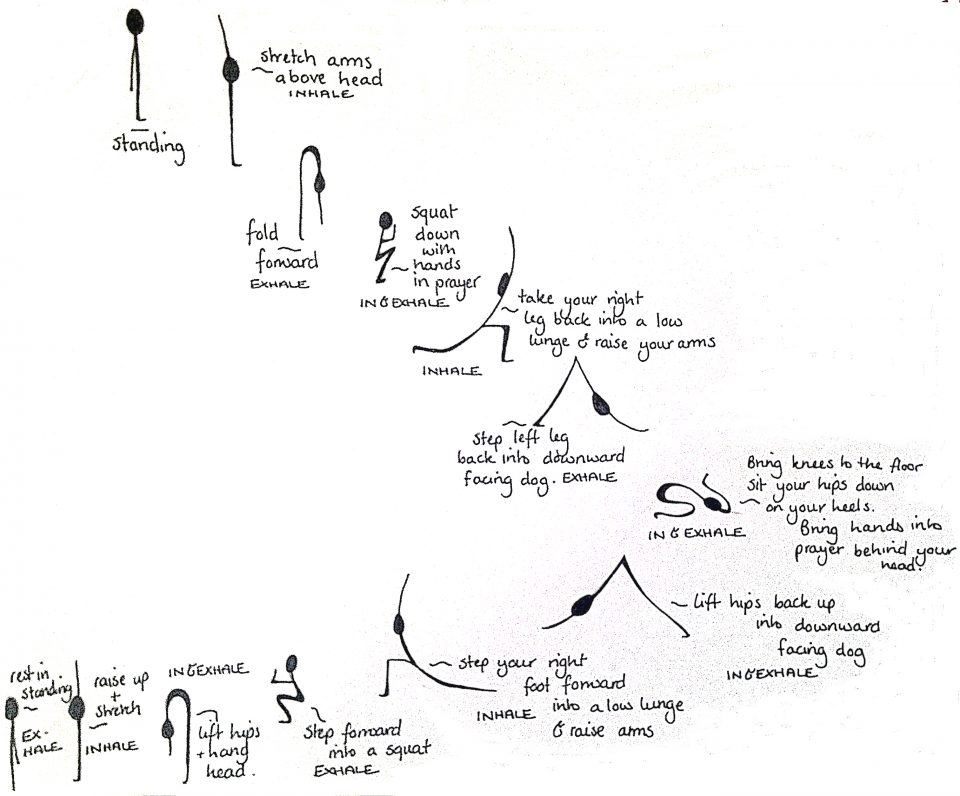 standing
stretch arms
above head
INHALE
fold
forward
EXHALE
squat
down
with
hands
in prayer
IN & EXHALE
take your right
leg back into a low
lunge & raise your arms
INHALE
step left leg
back into downward
facing dog. EXHALE
Bring knees to the floor
sit your hips down
on your heels.
Bring hands into
prayer behind your
head.
IN & EXHALE
lift hips back up
into downward
facing dog
IN & EXHALE
step your right
foot forward
into a low lunge
& raise arms
INHALE
Step forward
into a squat
EXHALE
IN & EXHALE
lift hips
+ hang
head.
raise up
+
stretch
INHALE
rest in
standing
EX-
HALE